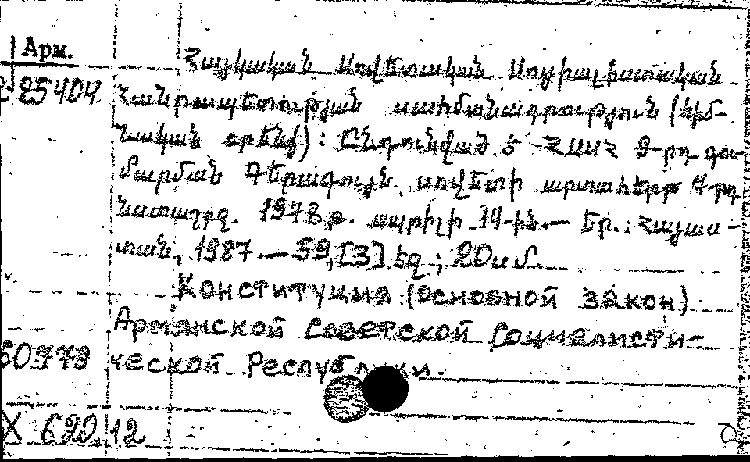 Арм.
Հայկական Սովետական Սոցիալիստական
25404 Հանրապետության սահմանադրություն (հիմ-
նական օրենք): Ընդունված է ՀՍՍՀ 9-րդ գու-
մարման Գերագույն սովետի արտահերթ 7-րդ
նստաշրջ. 1978 թ. ապրիլի 14-ին. — Եր.: Հայաս-
տան, 1987. — 59,[3] էջ ; 20 սմ.
Конституция (основной закон)
Армянской Советской Социалисти-
ческой Республики.
X 620.12